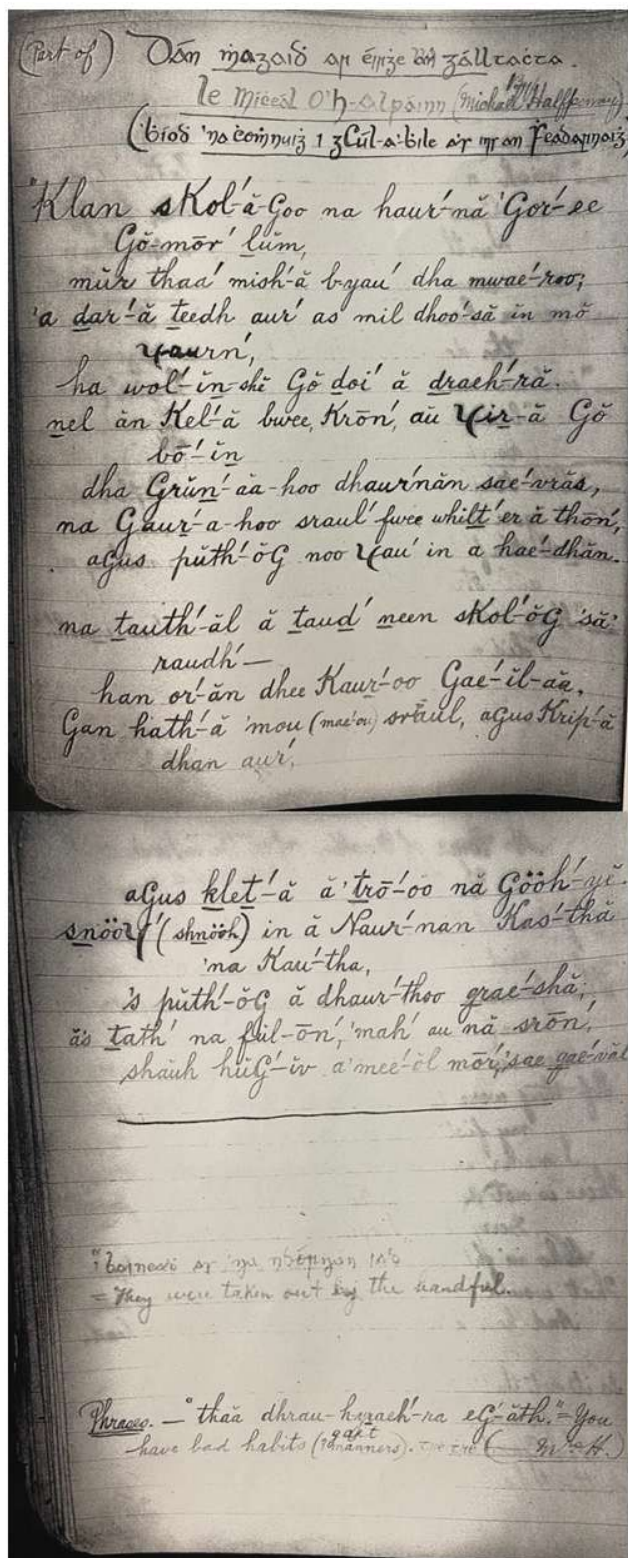 (Part of) Dán ṁagaiḋ ar éirġe an ġálltaċta.
le Mícéal O'h-alpáinn (Michael Halfpenny)
(ḃíoḋ 'na ċoṁnuiġ i gCúl-a'-bile
"Klan skol´-ă-Goo na haur´-nă 'Gor´-ee
Gŏ-mōr´ lŭm,
mŭr thaa´ mish´-ă b-yau´ dha mwae´-roo;
'a dar´-ă teedh aur´ as mil dhoo´-să in mŏ
ɣaurn´,
ha wol´-ĭn-shĕ Gŏ doi´ ă draeh´-ră.
nel ăn Kel´-ă bwee, Krōn´, aŭ ɣir-ă Gŏ
bō´-ĭn
dha Grŭn´-aa-hoo dhaur´năn sae´-vrăs,
na Gaur´-a-hoo sraul´ fwee whilt´-er ă thōn´,
aGus pŭth´-ŏG noo ɣau´ in a hae´-dhăn.
na tauth´-ăl ă taud´ neen skol´-ŏG 'să'
raudh´—
han or´-ăn dhee Kaur´-oo Gae´-ĭl-aa,
Gan hath´-ă 'mou (mae´-ou) sraul, aGus Krip´-ă
dhan aur´,
aGus klet´-ă ă'trō´-oo nă Gööh´-yĕ.
snööɣ´ (shnööh) in ă Naur´-nan Kas´-thă
'na Kau´-tha,
's pŭth´-ŏG ă dhaur´-thoo grae´-shă;
ăs tath´ na fuil-ōn´, 'mah´ au nă srōn´,
shauh hŭG´-ĭv a'mee´-ŏl mōr´, 'sae gae´-văl
= They were taken out by the handful.
Phrases. — "thaa dhrau-h-raeh´-ra eG´-ăth." = You
have bad habits (manners). Mrs H.)